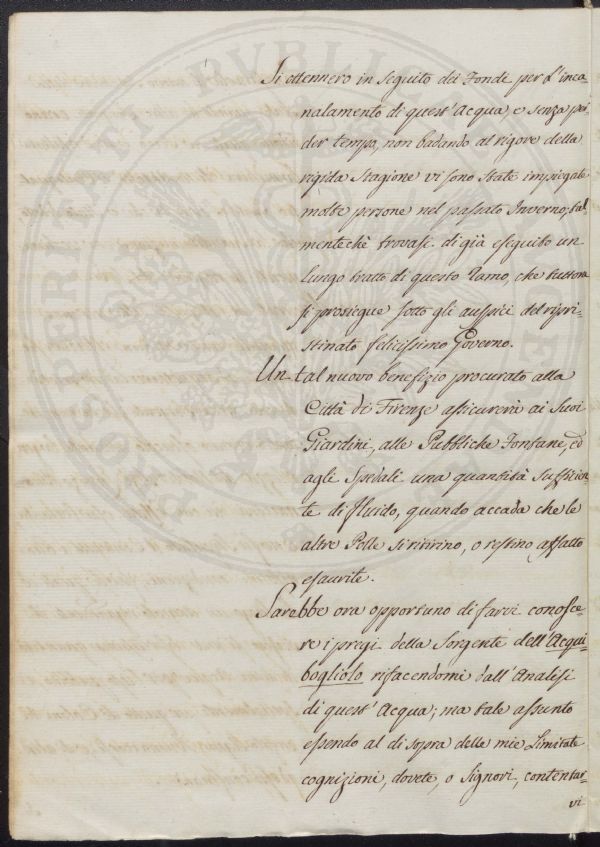 Si ottennero in seguito dei Fonde per l'inca-
nalamento di quest'Acqua, e senza per-
der tempo, non badando al rigore della
rigida Stagione vi sono state impiegate
molte persone nel passato Inverno, tal
mentechè trovasi di già eseguito un
lungo tratto di questo Ramo, che tuttora
si prosiegue sotto gli auspici del ripri-
stinato felicissimo Governo.
Un tal nuovo benefizio procurato alla
Città di Firenze assicurerà ai Suoi
Giardini, alle Pubbliche Fontane, ed
agli Spedali una quantità sufficien
te di fluido, quando accada che le
altre Polle si ritirino, o restino affatto
esaurite.
Sarebbe ora opportuno di farvi conosce-
re i pregi della Sorgente dell'Acqui-
bogliolo rifacendomi dall'Analisi
di quest'Acqua; ma tale assunto
essendo al di sopra delle mie Limitate
cognizioni, dovete, o Signori, contentar-
vi
PROSPERITATI PVBLICAE